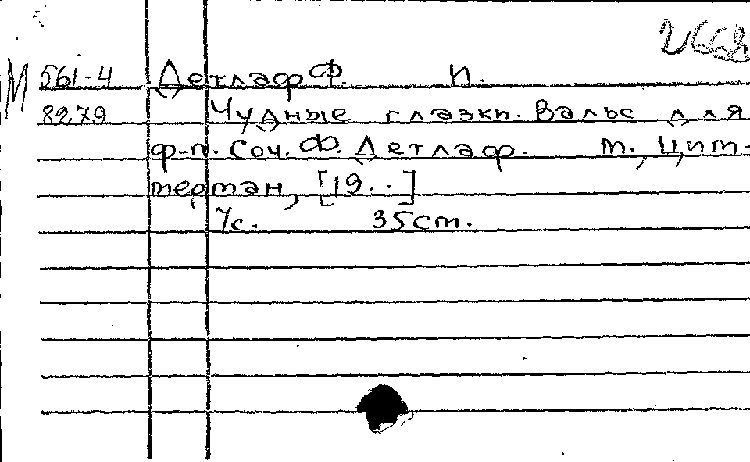 М 561-4 Детлаф Ф. п.
8279 Чудные глазки. Вальс для
ф-п. Соч. Ф. Детлаф. М., Цим-
мерман, [19..]
7с. 35см.